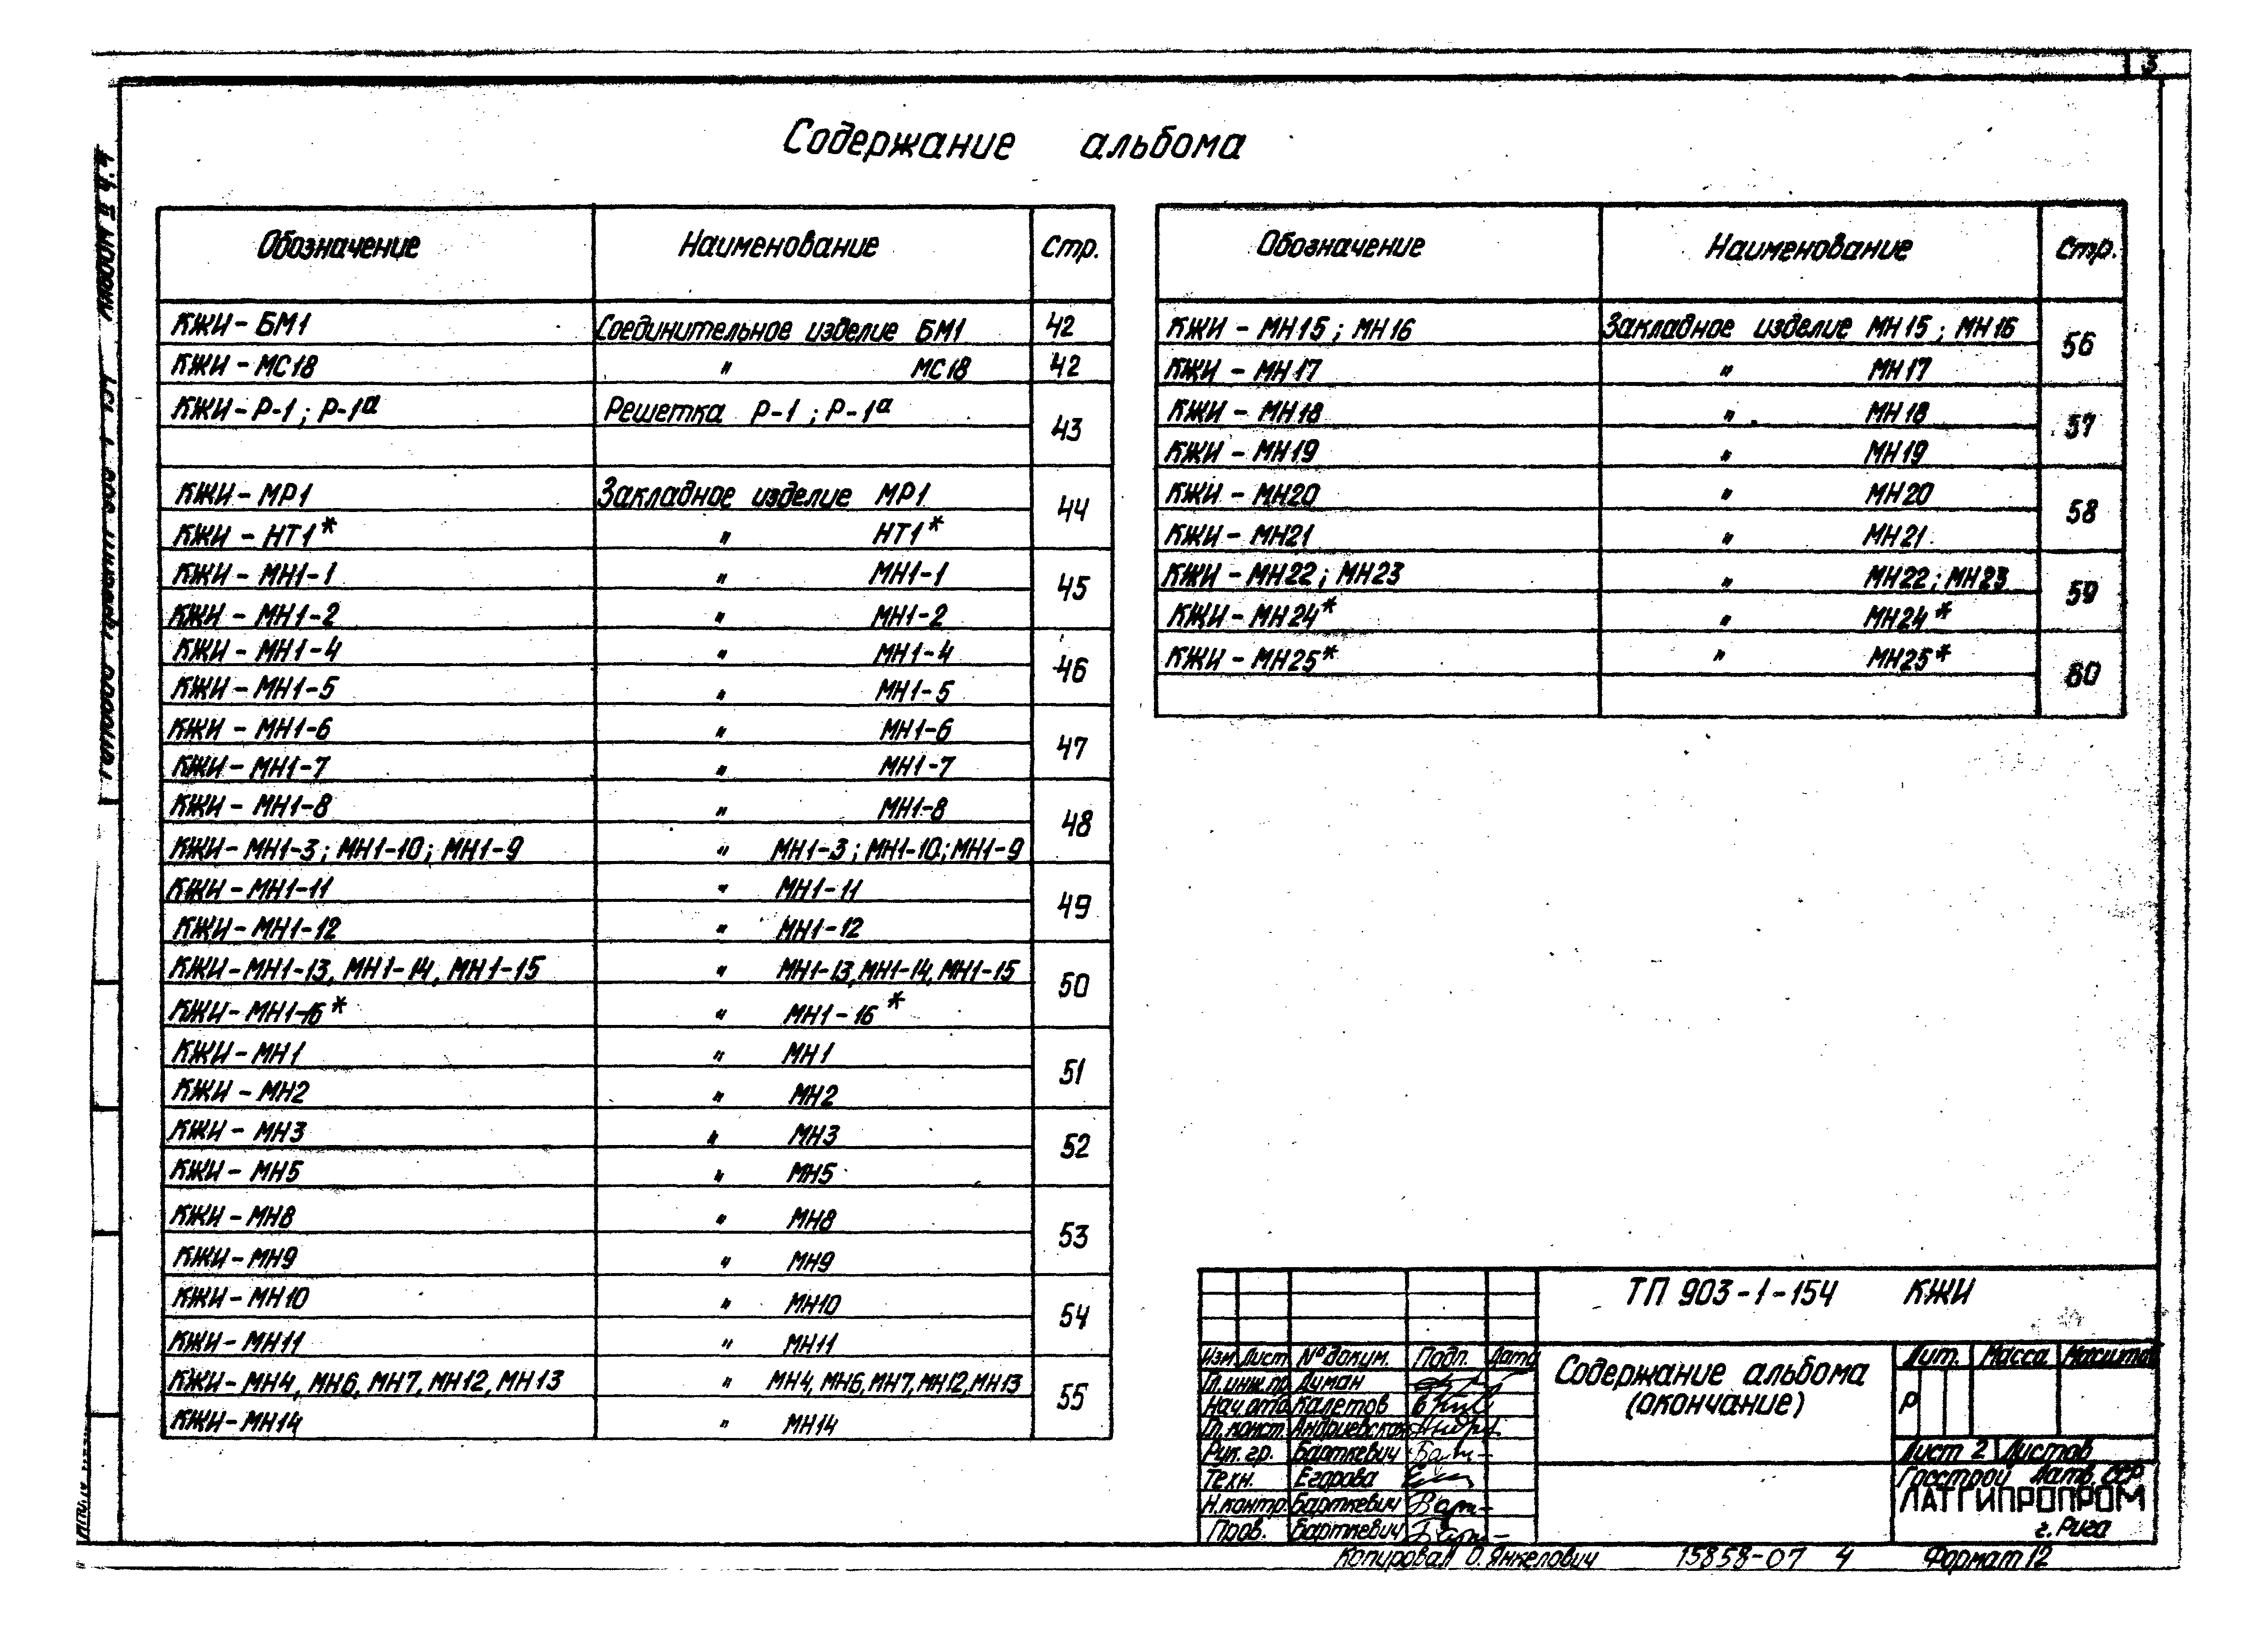 3
Содержание альбома
Обозначение Наименование Стр.
КЖИ - БМ1 Соединительное изделие БМ1 42
КЖИ - МС18 " МС18 42
КЖИ - Р-1 ; Р-1а Решетка Р-1 ; Р-1а 43
КЖИ - МР1 Закладное изделие МР1 44
КЖИ - НТ1* " НТ1*
КЖИ - МН1-1 " МН1-1 45
КЖИ - МН1-2 " МН1-2
КЖИ - МН1-4 " МН1-4 46
КЖИ - МН1-5 " МН1-5
КЖИ - МН1-6 " МН1-6 47
КЖИ - МН1-7 " МН1-7
КЖИ - МН1-8 " МН1-8 48
КЖИ - МН1-3 ; МН1-10 ; МН1-9 " МН1-3 ; МН1-10 ; МН1-9
КЖИ - МН1-11 " МН1-11 49
КЖИ - МН1-12 " МН1-12
КЖИ - МН1-13, МН1-14, МН1-15 " МН1-13, МН1-14, МН1-15 50
КЖИ - МН1-16* " МН1-16*
КЖИ - МН1 " МН1 51
КЖИ - МН2 " МН2
КЖИ - МН3 " МН3 52
КЖИ - МН5 " МН5
КЖИ - МН8 " МН8 53
КЖИ - МН9 " МН9
КЖИ - МН10 " МН10 54
КЖИ - МН11 " МН11
КЖИ - МН4, МН6, МН7, МН12, МН13 " МН4, МН6, МН7, МН12, МН13 55
КЖИ - МН14 " МН14
Обозначение Наименование Стр.
КЖИ - МН15 ; МН16 Закладное изделие МН15 ; МН16 56
КЖИ - МН17 " МН17
КЖИ - МН18 " МН18 57
КЖИ - МН19 " МН19
КЖИ - МН20 " МН20 58
КЖИ - МН21 " МН21
КЖИ - МН22 ; МН23 " МН22 ; МН23 59
КЖИ - МН24* " МН24*
КЖИ - МН25* " МН25* 60
ТП 903-1-154 КЖИ
Изм. Лист № докум. Подп. Дата
Гл. инж. пр. Думан
Нач. отд. Калетов
Гл. конст. Андриевская
Рук. гр. Барткевич
Техн. Егорова
Н. контр. Барткевич
Пров. Барткевич
Содержание альбома
(окончание)
Лит. Масса Масштаб
Р
Лист 2 Листов
Госстрой Латв. ССР
ЛАТГИПРОПРОМ
г. Рига
Копировал О. Янкелович 15858-07 4 Формат 12